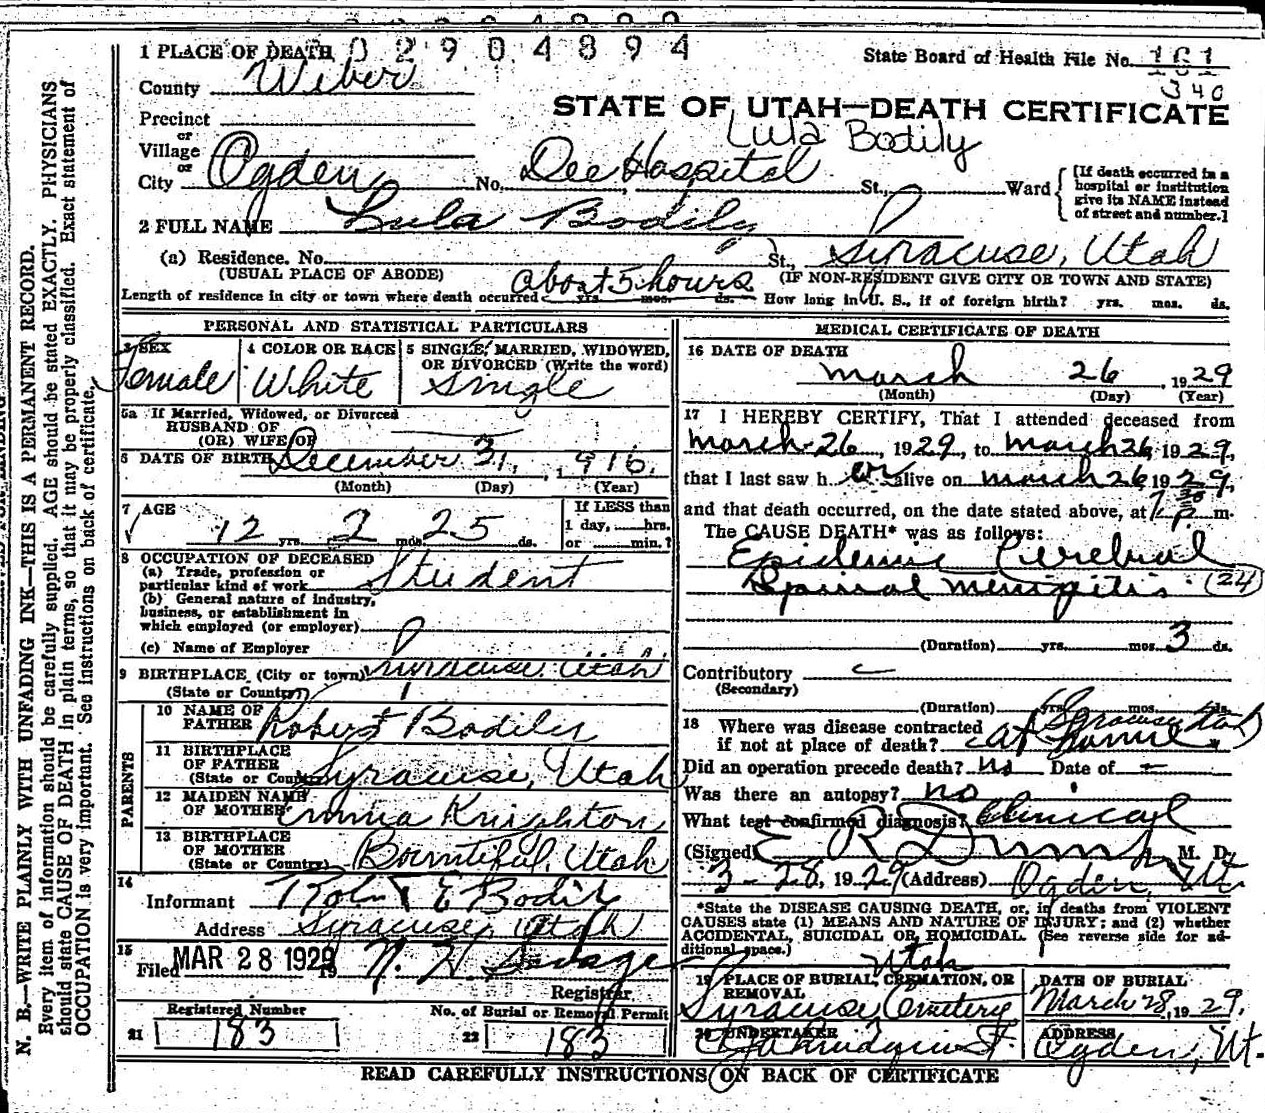 0 2 9 0 4 8 9 4
1 PLACE OF DEATH
State Board of Health File No. 161
340
County Weber
STATE OF UTAH—DEATH CERTIFICATE
Precinct
Lula Bodily
or
Village
or
City Ogden No. Dee Hospital St., Ward
[If death occurred in a hospital or institution give its NAME instead of street and number.]
2 FULL NAME Lula Bodily
(a) Residence. No. St., Syracuse, Utah
(USUAL PLACE OF ABODE) (IF NON-RESIDENT GIVE CITY OR TOWN AND STATE)
Length of residence in city or town where death occurred about 5 hours yrs. mos. ds. How long in U. S., if of foreign birth? yrs. mos. ds.
PERSONAL AND STATISTICAL PARTICULARS
3 SEX
Female
4 COLOR OR RACE
White
5 SINGLE, MARRIED, WIDOWED, OR DIVORCED (Write the word)
Single
5a If Married, Widowed, or Divorced
HUSBAND OF
(OR) WIFE OF
6 DATE OF BIRTH December 31, 1916.
(Month) (Day) (Year)
7 AGE
12 yrs. 2 mos. 25 ds.
If LESS than
1 day, hrs.
or min.?
8 OCCUPATION OF DECEASED
(a) Trade, profession or
particular kind of work Student
(b) General nature of industry,
business, or establishment in
which employed (or employer)
(c) Name of Employer
9 BIRTHPLACE (City or town) Syracuse, Utah
(State or Country)
PARENTS
10 NAME OF
FATHER Robert Bodily
11 BIRTHPLACE
OF FATHER
(State or Country) Syracuse, Utah
12 MAIDEN NAME
OF MOTHER Emma Knighton
13 BIRTHPLACE
OF MOTHER
(State or Country) Bountiful, Utah
14
Informant Robt E Bodily
Address Syracuse, Utah
15
Filed MAR 28 1929 19 N. H. Savage
Registrar
Registered Number No. of Burial or Removal Permit
21 183 22 183
MEDICAL CERTIFICATE OF DEATH
16 DATE OF DEATH
March 26, 1929
(Month) (Day) (Year)
17 I HEREBY CERTIFY, That I attended deceased from
March 26, 1929, to March 26, 1929,
that I last saw her alive on March 26, 1929,
and that death occurred, on the date stated above, at 7 30 P m.
The CAUSE DEATH* was as follows:
Epidemic Cerebral
Spinal Meningitis (24)
(Duration) yrs. mos. 3 ds.
Contributory
(Secondary)
(Duration) yrs. mos. ds.
18 Where was disease contracted
if not at place of death? at home Syracuse Utah
Did an operation precede death? no Date of
Was there an autopsy? no
What test confirmed diagnosis? Clinical
(Signed) E R Dumke, M. D.
3-28, 1929 (Address) Ogden, Ut.
*State the DISEASE CAUSING DEATH, or, in deaths from VIOLENT
CAUSES state (1) MEANS AND NATURE OF INJURY; and (2) whether
ACCIDENTAL, SUICIDAL OR HOMICIDAL. (See reverse side for additional space.)
19 PLACE OF BURIAL, CREMATION, OR
REMOVAL
Utah
Syracuse Cemetery
DATE OF BURIAL
March 28, 1929.
20 UNDERTAKER
ADDRESS
Ogden, Ut.
READ CAREFULLY INSTRUCTIONS ON BACK OF CERTIFICATE
N. B.—WRITE PLAINLY WITH UNFADING INK—THIS IS A PERMANENT RECORD.
Every item of information should be carefully supplied. AGE should be stated EXACTLY. PHYSICIANS
should state CAUSE OF DEATH in plain terms, so that it may be properly classified. Exact statement of
OCCUPATION is very important. See instructions on back of certificate.